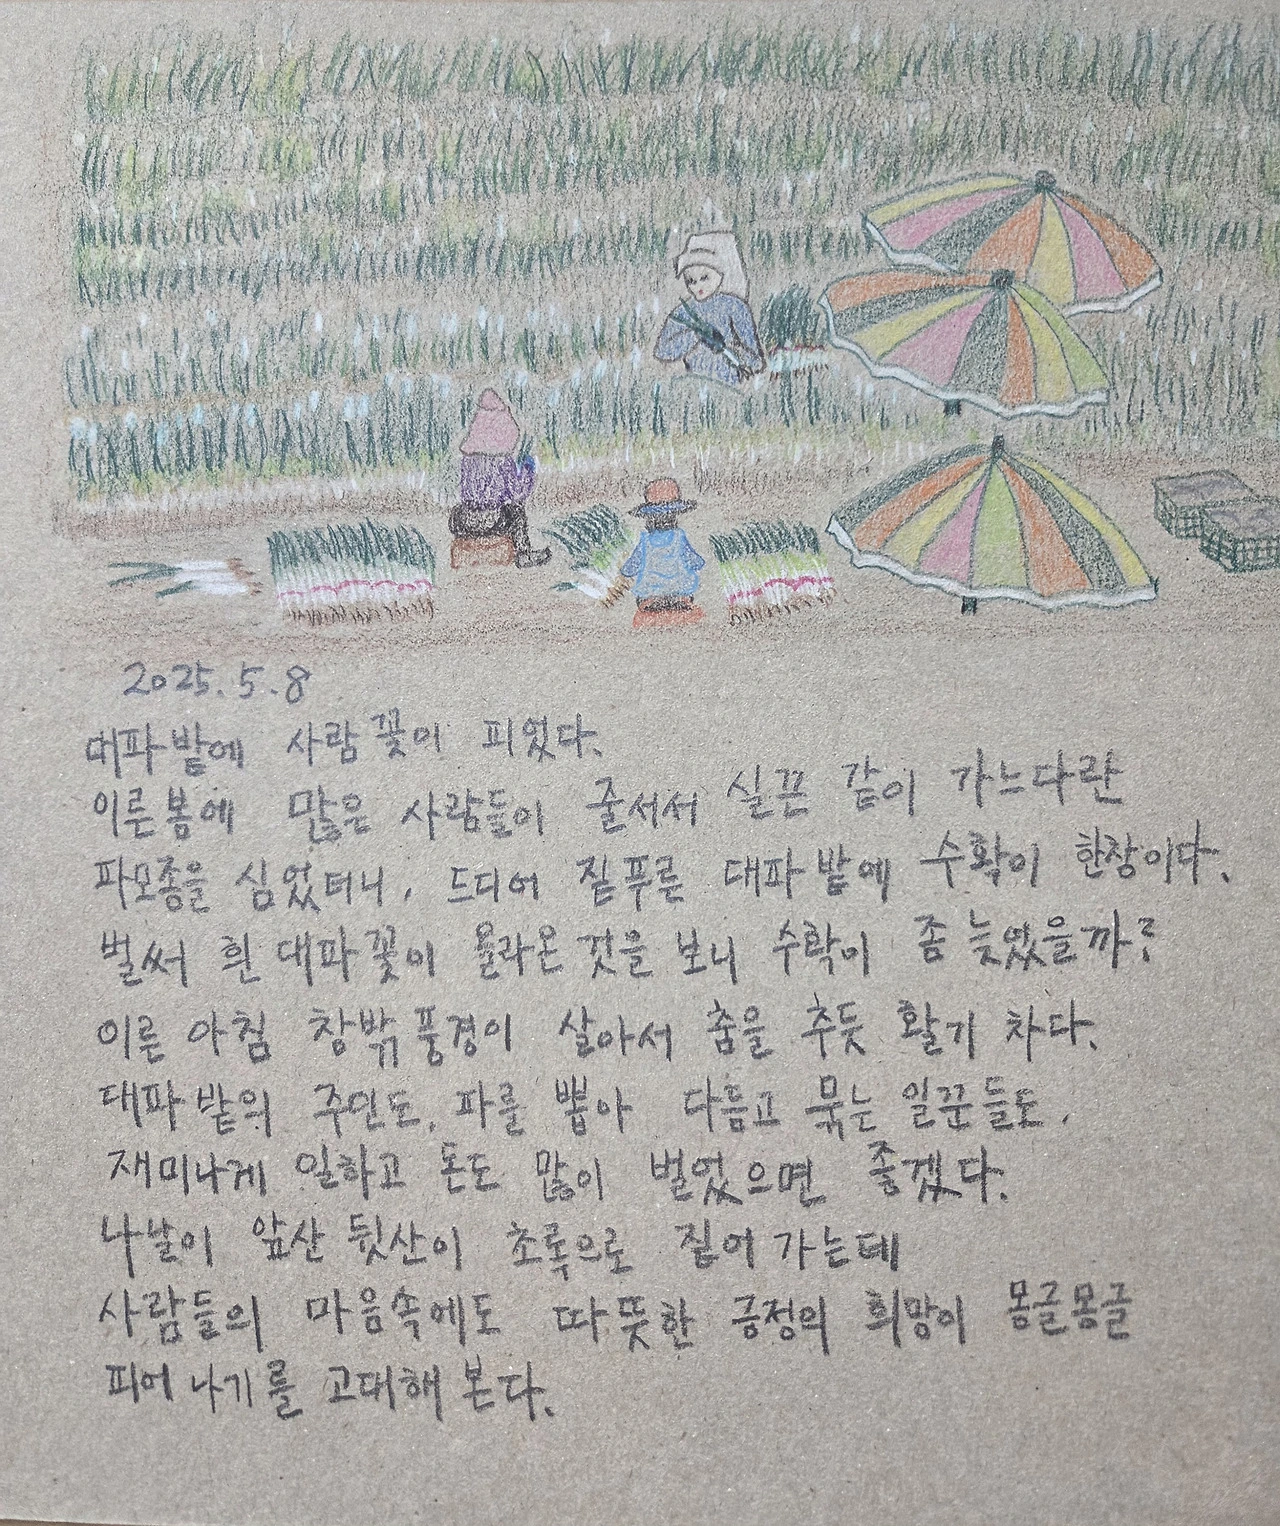 2025.5.8
대파밭에 사람꽃이 피었다.
이른봄에 많은 사람들이 줄서서 실끈 같이 가느다란
파모종을 심었더니, 드디어 짙푸른 대파밭에 수확이 한창이다.
벌써 흰 대파꽃이 올라온 것을 보니 수확이 좀 늦었을까?
이른 아침 창밖풍경이 살아서 춤을 추듯 활기 차다.
대파밭의 주인도, 파를 뽑아 다듬고 묶는 일꾼들도,
재미나게 일하고 돈도 많이 벌었으면 좋겠다.
나날이 앞산 뒷산이 초록으로 짙어 가는데
사람들의 마음속에도 따뜻한 긍정의 희망이 몽글몽글
피어나기를 고대해 본다.